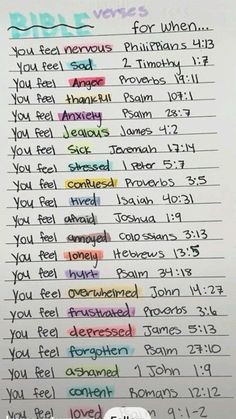 BIBLE verses
for when...
You feel nervous Philippians 4:13
You feel sad 2 Timothy 1:7
You feel Anger Proverbs 19:11
You feel thankful Psalm 107:1
You feel Anxiety Psalm 28:7
You feel Jealous James 4:2
You feel Sick Jeremiah 17:14
You feel stressed 1 Peter 5:7
You feel confuesd Proverbs 3:5
You feel tired Isaiah 40:31
You feel afraid Joshua 1:9
You feel annoyed Colossians 3:13
You feel lonely Hebrews 13:5
You feel hurt Psalm 34:18
You feel overwhelmed John 14:27
You feel frustrated Proverbs 3:6
You feel depressed James 5:13
You feel forgotten Psalm 27:10
You feel ashamed 1 John 1:9
You feel content Romans 12:12
You feel loved